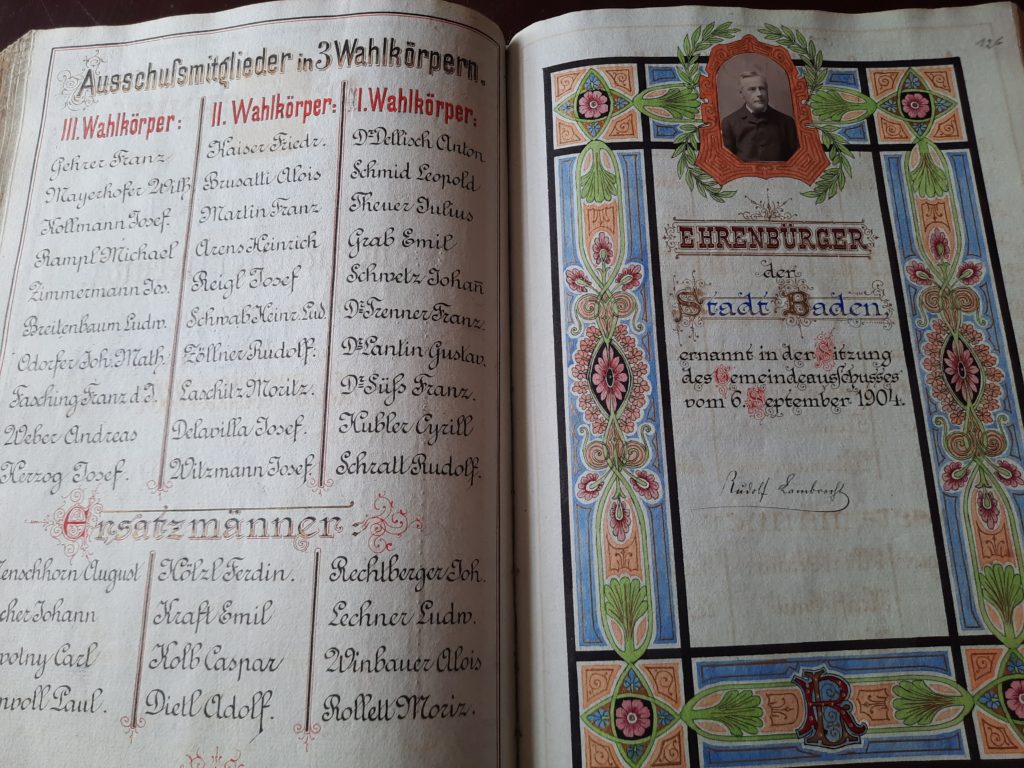 Ausschußmitglieder in 3 Wahlkörpern.
III. Wahlkörper:
Gehrer Franz
Mayerhofer Wilh
Kollmann Josef.
Rampl Michael
Zimmermann Jos.
Breitenbaum Ludw.
Odorfer Joh. Math.
Fasching Franz d. J.
Weber Andreas
Herzog Josef.
II. Wahlkörper:
Kaiser Friedr.
Brusatti Alois
Martin Franz
Arens Heinrich
Reigl Josef
Schwab Heinr. Lud.
Zöllner Rudolf.
Laschitz Moritz.
Delavilla Josef.
Witzmann Josef.
I. Wahlkörper:
Dr. Anton
Schmid Leopold
Theuer Julius
Grab Emil
Schwetz Johan̄
Dr. Trenner Franz.
Dr. Lantin Gustav.
Dr. Süß Franz.
Kübler Cyrill
Schratt Rudolf.
Ersatzmänner:
enschhorn August
cher Johann
wotny Carl
nvoll Paul.
Hölzl Ferdin.
Kraft Emil
Kolb Caspar
Dietl Adolf.
Rechtberger Joh.
Lechner Ludw.
Winbauer Alois
Rollett Moriz.
126
EHRENBÜRGER
der
Stadt Baden,
ernannt in der Sitzung
des Gemeindeausschusses
vom 6. September 1904.
Rudolf Lambrecht